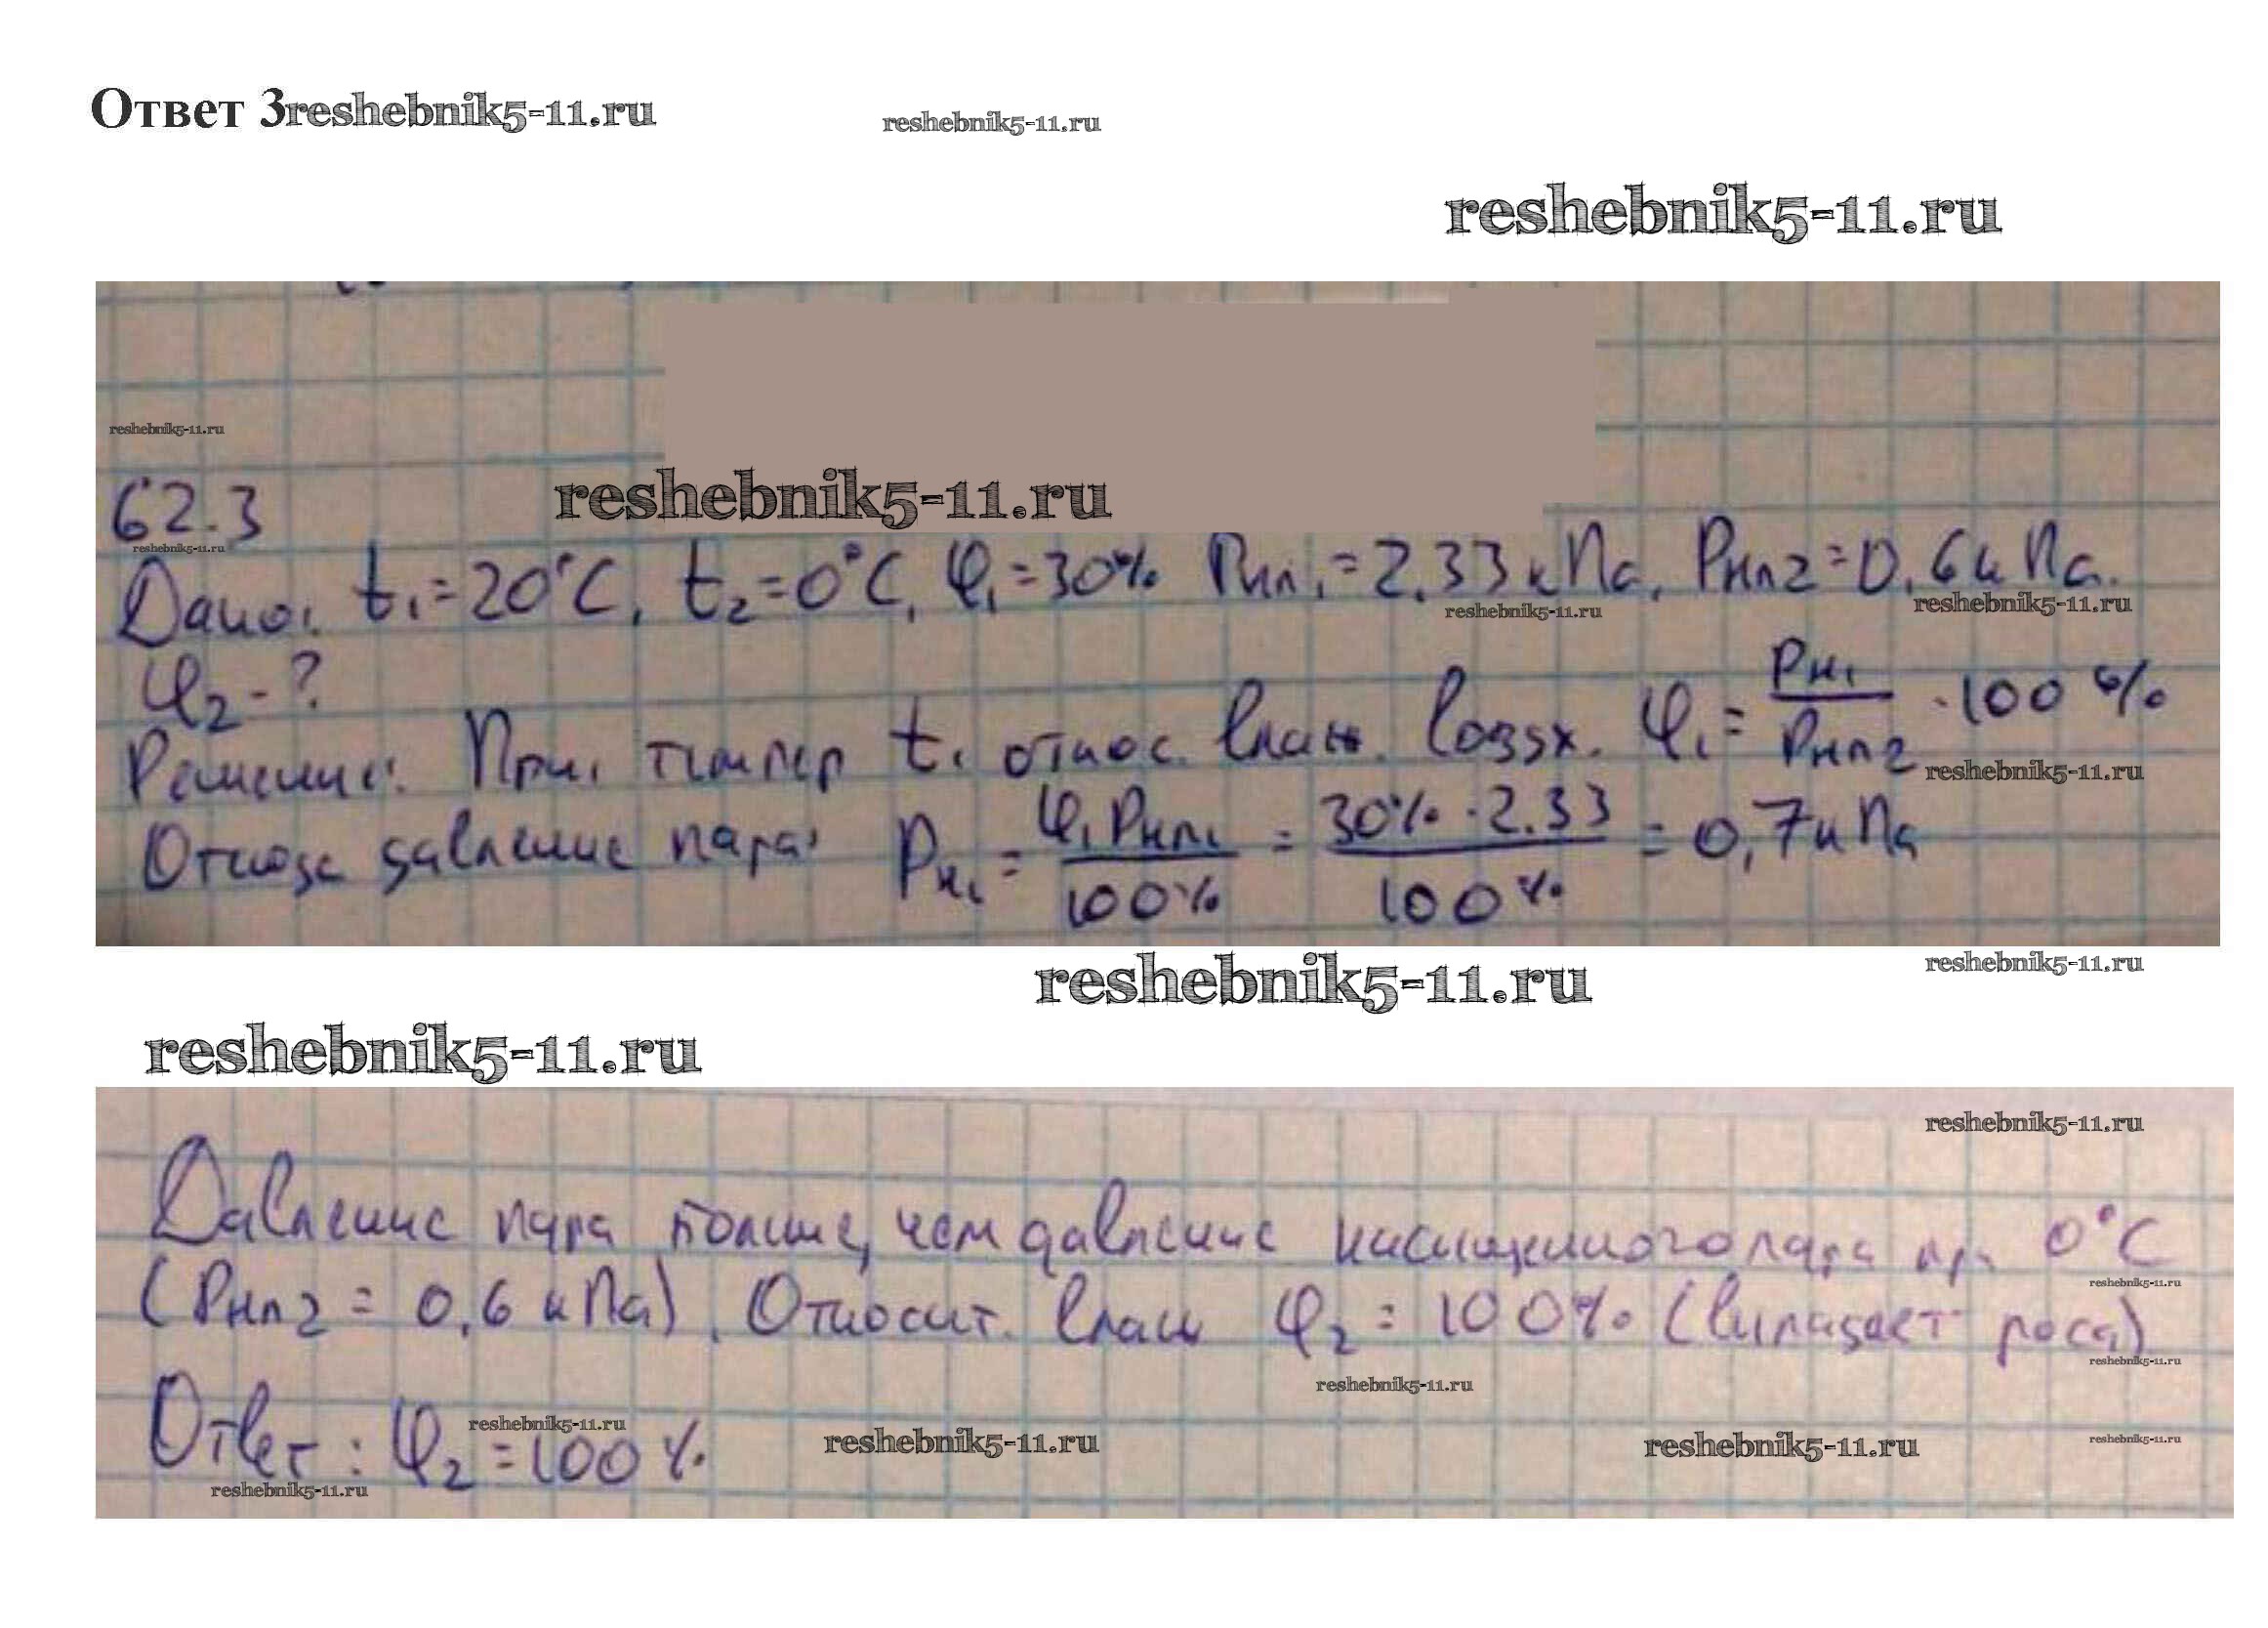 Ответ 3reshebnik5-11.ru
reshebnik5-11.ru
reshebnik5-11.ru
reshebnik5-11.ru
62.3
reshebnik5-11.ru
reshebnik5-11.ru
Дано: t₁=20°C, t₂=0°C, φ₁=30% Pнп₁=2.33кПа, Pнп2=0,6кПа.
reshebnik5-11.ru
reshebnik5-11.ru
φ₂-?
Решение: При темпер t₁ относ. влаж. возд. φ₁=Pн₁/Pнп2·100%
reshebnik5-11.ru
Отсюда давление пара: Pн₁=φ₁Pнп₁/100%=30%·2.33/100%=0,7кПа
reshebnik5-11.ru
reshebnik5-11.ru
reshebnik5-11.ru
reshebnik5-11.ru
Давление пара больше, чем давление насыщенного пара при 0°C
reshebnik5-11.ru
(Pнп2=0,6кПа). Относит. влаж φ₂=100% (выпадает роса)
reshebnik5-11.ru
reshebnik5-11.ru
Ответ: φ₂=100%
reshebnik5-11.ru
reshebnik5-11.ru
reshebnik5-11.ru
reshebnik5-11.ru
reshebnik5-11.ru